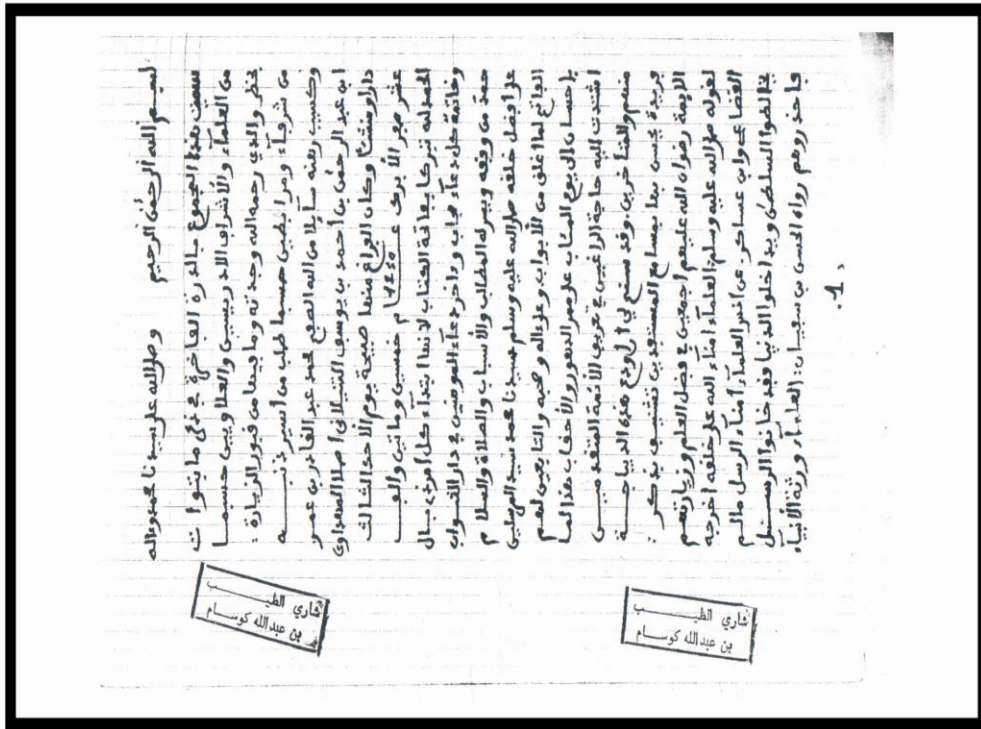 بسم الله الرحمن الرحيم وصلى الله على سيدنا محمد وءاله
سميت هذا المجموع بالدرة الفاخرة في ذكر ما بتوات
من العلماء والأشراف الادريسيين والعلاويين حسبما
بخط والدي رحمه الله وجدته وما فيها من قبور الزيارة:
من شرفاء ومرابطين حسبما طلب من أسير ذنبه
وكسيب رهنه سائلا من الله الصفح محمد عبد القادر بن عمر
ابن عبد الرحمن بن أحمد بن يوسف التنيلاني أصلا المهداوي
دارا ومنشأ وكان الفراغ منها صبيحة يوم الأحد الثالث
عشر صفر الأبرك عام خمسين وماتين والف
الحمد لله تبركا بفاتحة الكتاب لانها ابتداء كل أمر ذي بال
وخاتمة كل دعاء مجاب وءاخر دعاء المومنين في دار الثواب
حمد من وفقه ويسر له المطالب والأسباب والصلاة والسلام
على أفضل خلقه صلى الله عليه وسلم سيدنا محمد سيد المرسلين
الفاتح لما اغلق من الأبواب وعلى ءاله وصحبه والتابعين لهم
بإحسان إلى يوم المئاب على مر الدهور والأحقاب هذا لما
اشتدت إليه حاجة الراغبين في تعريف الأئمة المتقدمين
منهم والمتأخرين. وقد سنح لي أن أودع هذه الديباجة
فريدة يحسن بها بمسامع تشنيف بذكر:
الايمة رضوان الله عليهم أجمعين في فضل العلم وزيارتهم
لقوله صلى الله عليه وسلم: العلماء أمناء الله على خلقه أخرجه
القضاعي وابن عساكر. عن أنس العلماء أمناء الرسل مالم
يخالطوا السلطن ويداخلوا الدنيا فقد خانوا الرسل
فاحذروهم رواه الحسن بن سفيان: العلماء ورثة الأنبياء
.1.
شاري الطيب
بن عبدالله كوسام
شاري الطيب
بن عبدالله كوسام